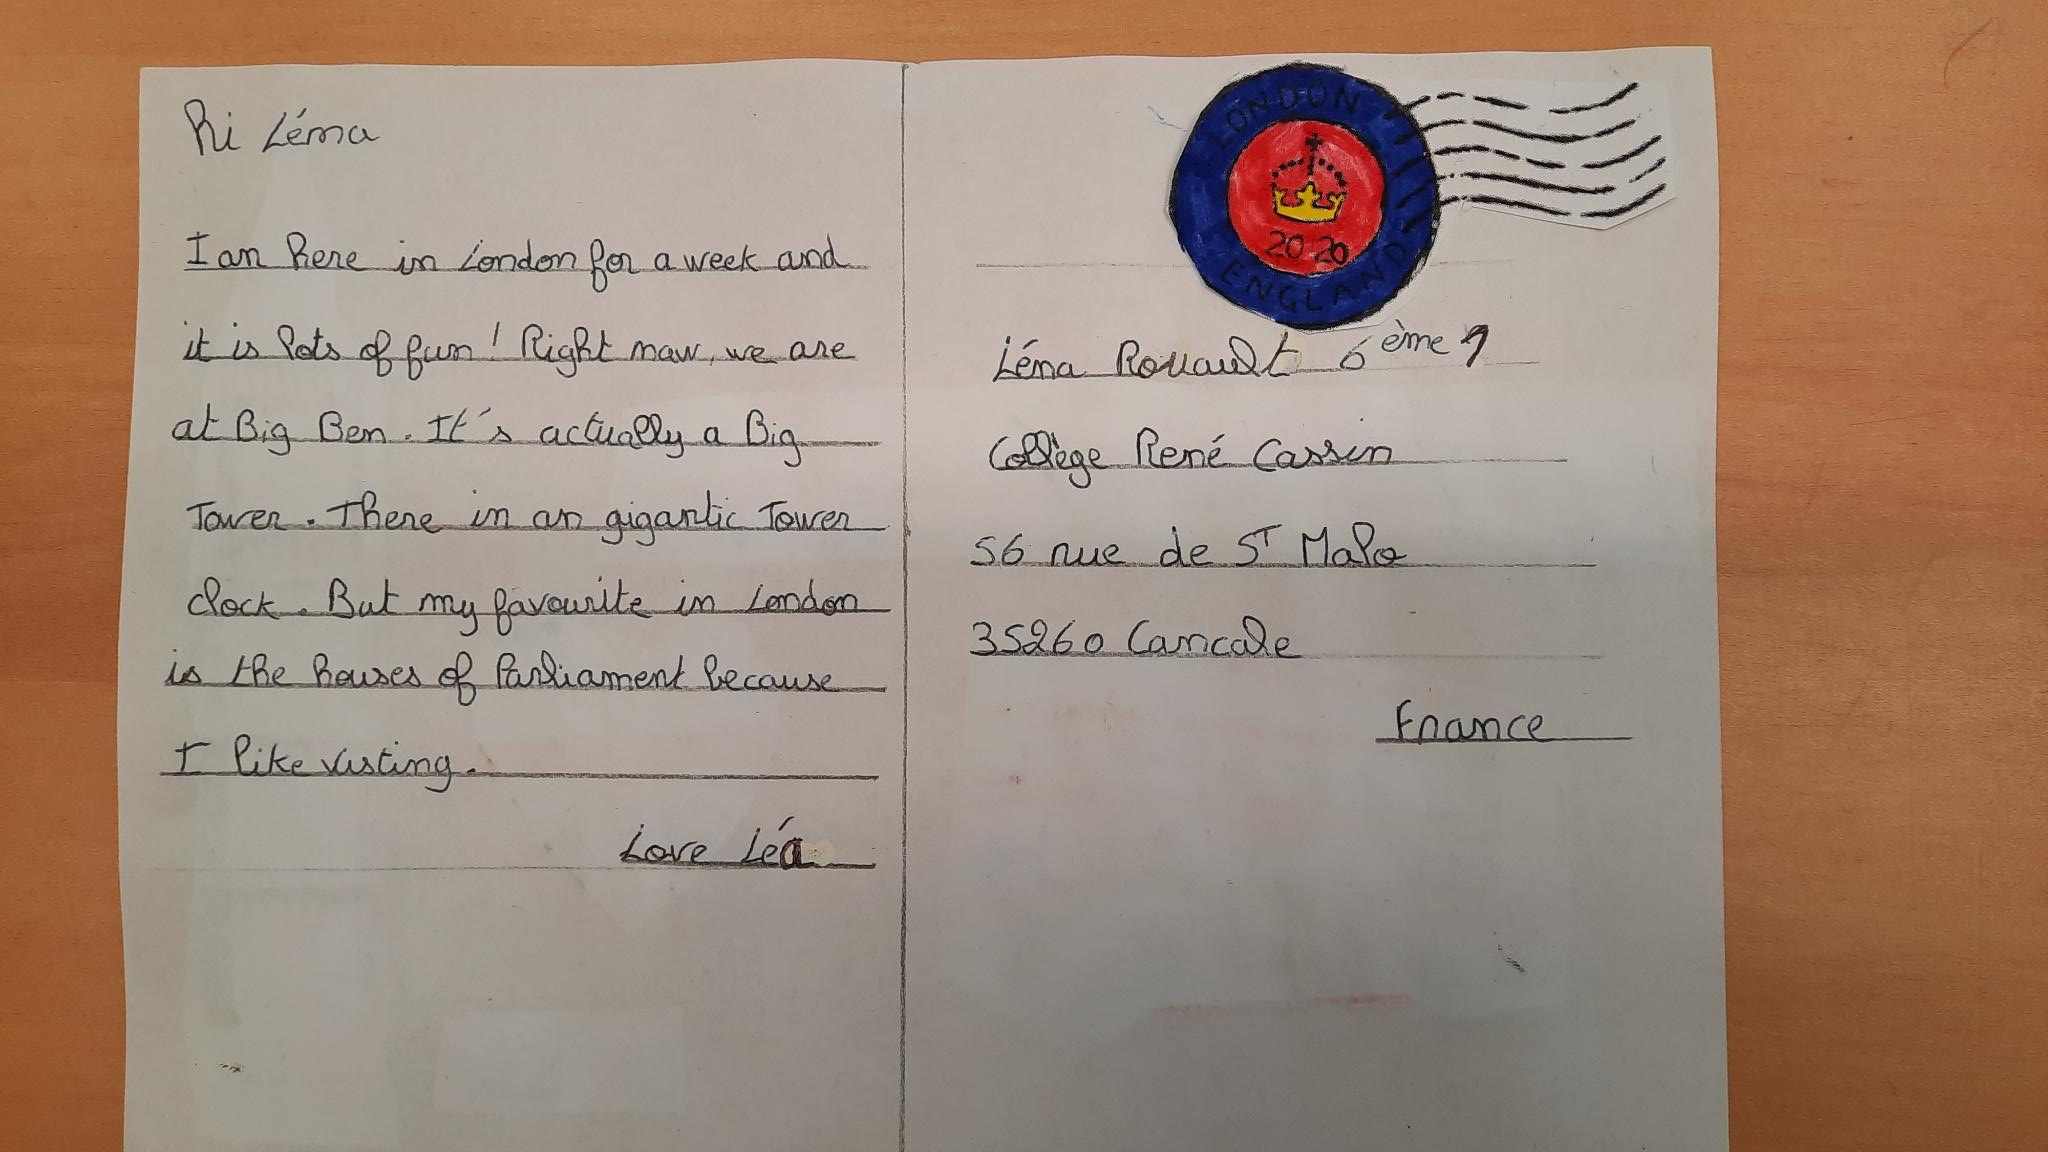 Hi Léna
I am here in London for a week and
it is lots of fun! Right now, we are
at Big Ben. It's actually a Big
Tower. There in an gigantic Tower
clock. But my favourite in London
is the houses of Parliament because
I like visting.
Love Léa
LONDON
2020
ENGLAND
Léna Rouault 6ème 1
Collège René Cassin
56 rue de ST Malo
35260 Cancale
France